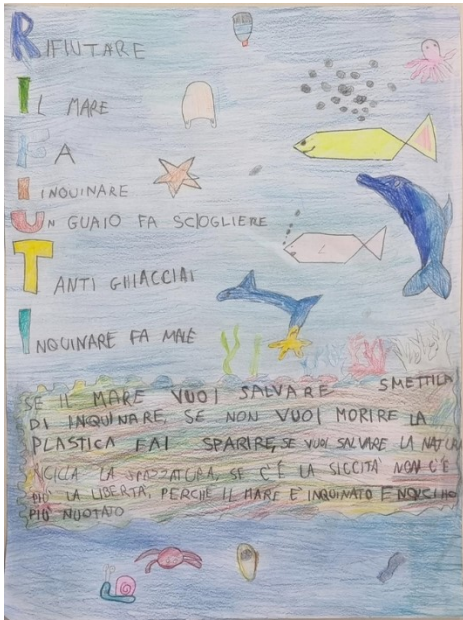 RIFIUTARE
IL MARE
FA
INQUINARE
UN GUAIO FA SCIOGLIERE
TANTI GHIACCIAI
INQUINARE FA MALE
SE IL MARE VUOI SALVARE SMETTILA
DI INQUINARE, SE NON VUOI MORIRE LA
PLASTICA FAI SPARIRE, SE VUOI SALVARE LA NATURA
RICICLA LA SPAZZATURA, SE C'È LA SICCITÀ NON C'È
PIÙ LA LIBERTÀ, PERCHÈ IL MARE È INQUINATO E NOI CI HO
PIÙ NUOTATO